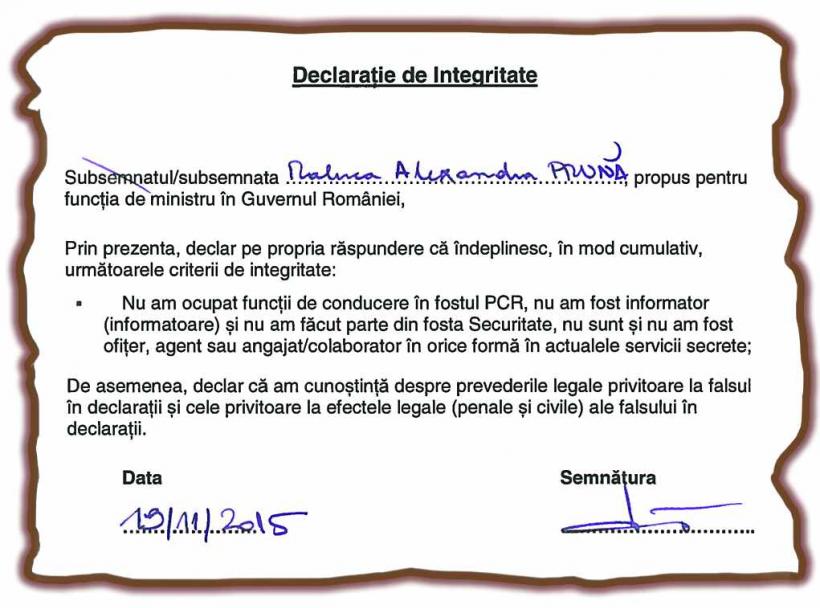 Declarație de Integritate
Subsemnatul/subsemnata Raluca Alexandra PRUNĂ, propus pentru
funcția de ministru în Guvernul României,
Prin prezenta, declar pe propria răspundere că îndeplinesc, în mod cumulativ,
următoarele criterii de integritate:
▪ Nu am ocupat funcții de conducere în fostul PCR, nu am fost informator
(informatoare) și nu am făcut parte din fosta Securitate, nu sunt și nu am fost
ofițer, agent sau angajat/colaborator în orice formă în actualele servicii secrete;
De asemenea, declar că am cunoștință despre prevederile legale privitoare la falsul
în declarații și cele privitoare la efectele legale (penale și civile) ale falsului în
declarații.
Data Semnătura
19/11/2015